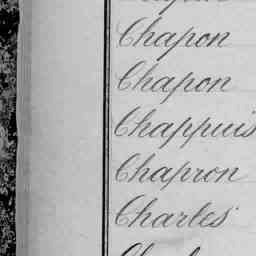 Chapon
Chapon
Chappuis
Chapron
Charles